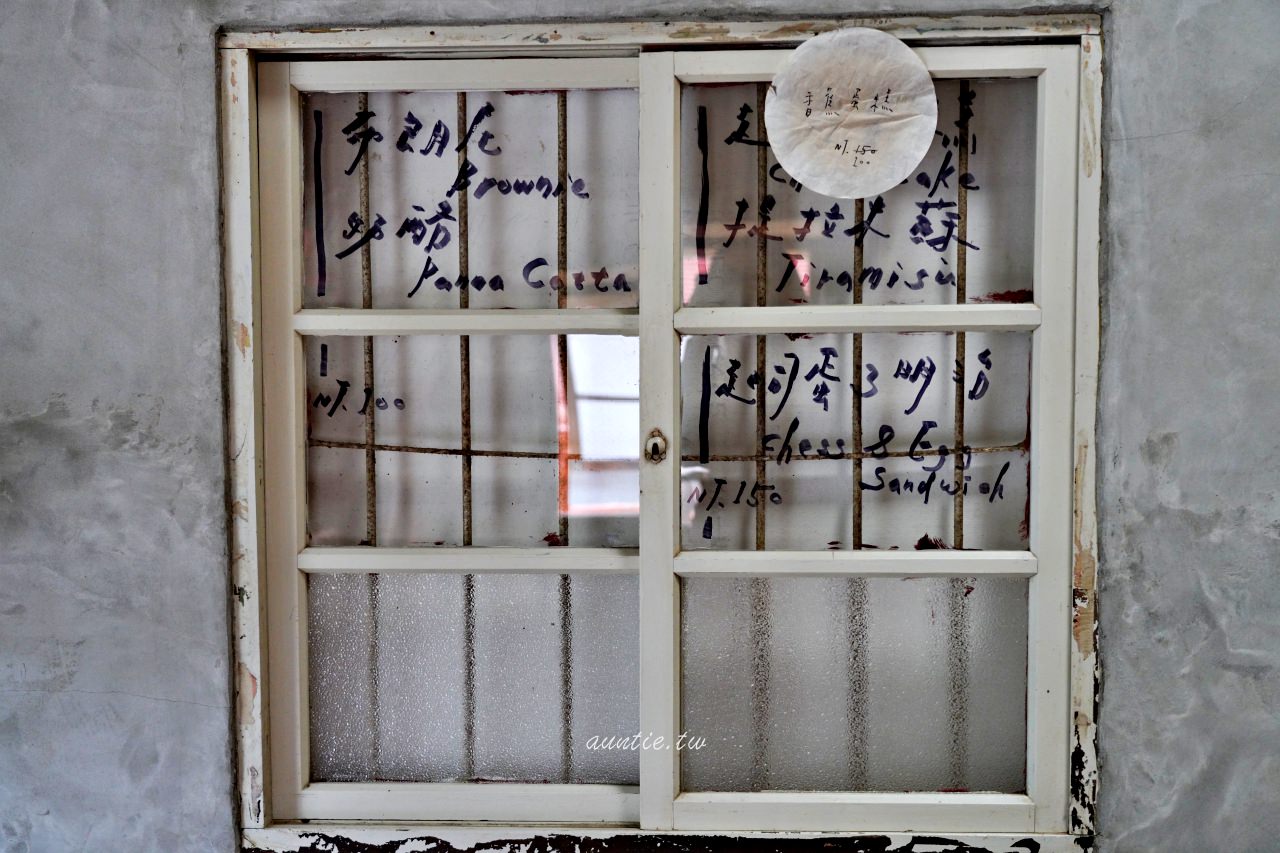 布朗尼
Brownie
奶酪
Panna Cotta
NT.100
香蕉蛋糕
NT.150
100
起
ake
提拉米蘇
Tiramisu
起司蛋三明治
Chess & Egg
Sandwich
NT.150
auntie.tw